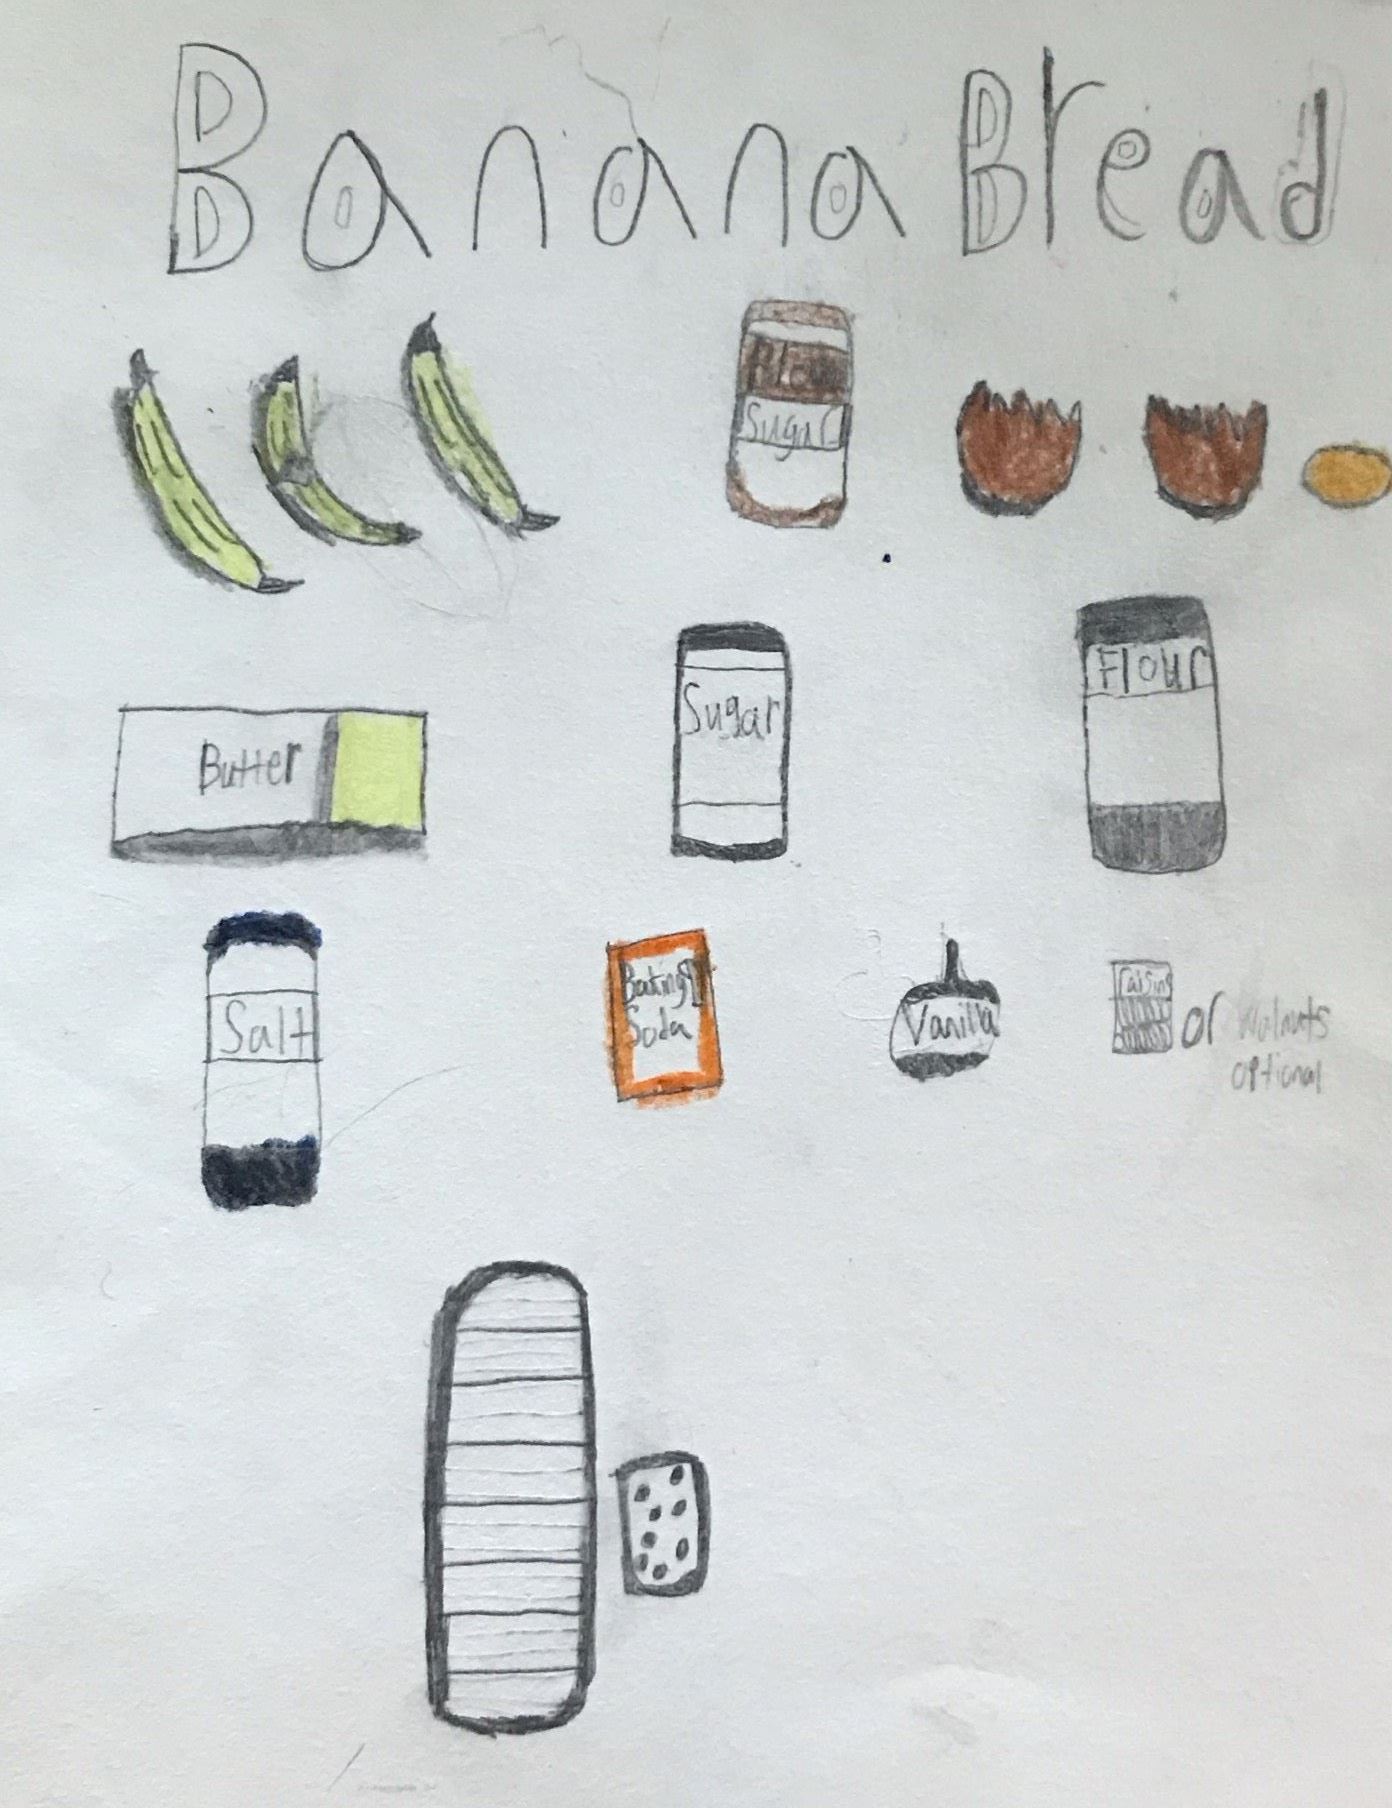 Banana Bread
Sugar
Sugar
Flour
Butter
Salt
Baking
Soda
Vanilla
raisins
or walnuts
optional